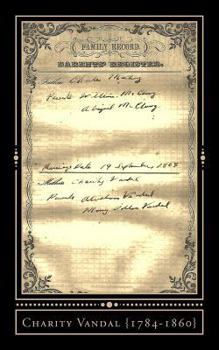 FAMILY RECORD.
PARENTS' REGISTER.
Father Charles
Parents William McClung
Abigail McClung
Marriage Date 19 September 1808
Mother Charity Vandal
Parents Abraham Vandal
Mary Vandal
Charity Vandal {1784-1860}